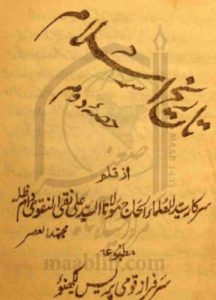 تاریخ اسلام
حصۂ دوم
از قلم
سرکار سید العلماء الحاج مولانا السید علی نقی النقوی دام ظلہ
مجتہد العصر
مطبوعہ
سرفراز قومی پریس لکھنؤ
maablib.org